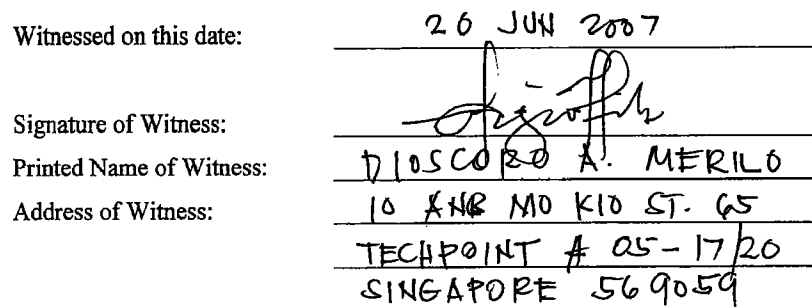 Witnessed on this date: 20 JUN 2007
Signature of Witness:
Printed Name of Witness: DIOSCORO A. MERILO
Address of Witness: 10 ANG MO KIO ST. 65
TECHPOINT # 05-17/20
SINGAPORE 569059